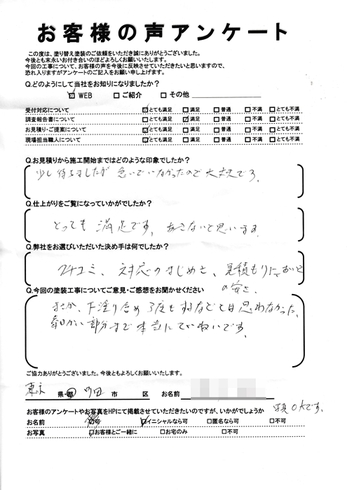 お客様の声アンケート
この度は、塗り替え塗装のご依頼をいただき誠にありがとうございました。
今後とも末永いお付き合いのほどよろしくお願いいたします。
今回の工事について、お客様の声を今後に反映させていただきたいと思いますので、
恐れ入りますがアンケートのご記入をお願い申し上げます。
Q.どのようにして当社をお知りになりましたか?
☑WEB □ご紹介 □その他
受付対応について ☑とても満足 □満足 □普通 □不満 □とても不満
調査報告書について □とても満足 ☑満足 □普通 □不満 □とても不満
お見積り・ご提案について ☑とても満足 □満足 □普通 □不満 □とても不満
現場担当職人について ☑とても満足 □満足 □普通 □不満 □とても不満
Q.お見積りから施工開始まではどのような印象でしたか?
少し待ちましたが 急いでいなかったので 大丈夫です。
Q.仕上がりをご覧になっていかがでしたか?
とっても 満足です。
Q.弊社をお選びいただいた決め手は何でしたか?
クチコミ、対応のまじめさ、見積もり
の安さ
Q.今回の塗装工事についてご意見・ご感想をお聞かせください
まさか、下塗り含め3度も
細かい部分まで本当にていねいです。
ご協力ありがとうございました。今後ともよろしくお願いいたします。
東京 県・都 町田 市 区 お名前
お客様のアンケートやお写真をHPにて掲載させていただきたいのですが、いかがでしょうか 写真OKです。
お名前 □可 ☑イニシャルなら可 □匿名なら可 □不可
お写真 □お客様とご一緒に □お宅のみ □不可